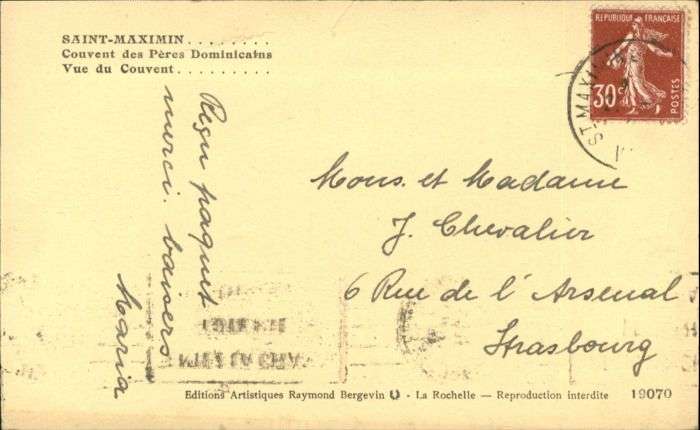 SAINT-MAXIMIN . . . . . . . .
Couvent des Pères Dominicains
Vue du Couvent . . . . . . . . . .
REPUBLIQUE FRANÇAISE
30c
POSTES
ST MAXI
Reçu paquet
merci. baisers
Maria
Mons. et Madame
J. Chevalier
6 Rue de l'Arsenal
Strasbourg
Editions Artistiques Raymond Bergevin - La Rochelle — Reproduction interdite 19070